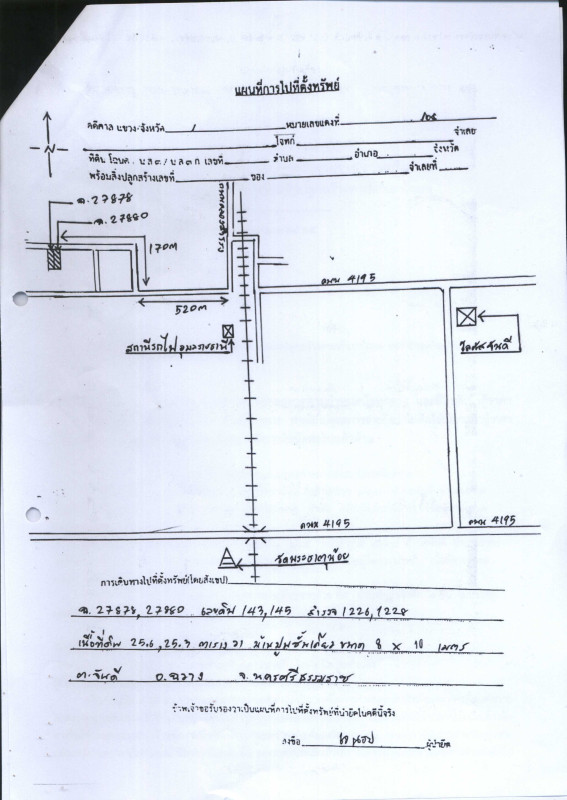 แผนที่การไปที่ตั้งทรัพย์
คดีศาล แขวง/จังหวัด / หมายเลขแดงที่
โจทก์ จำเลย
ที่ดิน โฉนด / น.ส.๓ / น.ส.๓ ก เลขที่ ตำบล อำเภอ จังหวัด
พร้อมสิ่งปลูกสร้างเลขที่ ของ จำเลยที่
N
ฉ. 27878
ฉ. 27880
170M
520M
ถนน 4195
สถานีรถไฟ
ถนน 4195
ถนน 4195
วัดพระธาตุน้อย
การเดินทางไปที่ตั้งทรัพย์(โดยสังเขป)
ฉ. 27878, 27880 เลขดิน 143,145 สำรวจ 1226,1228
เนื้อที่ดิน 25.6, 25.3 ตาราง วา บ้านปูนชั้นเดียว ขนาด 8 x 10 เมตร
ต.จันดี อ.ฉวาง จ.นครศรีธรรมราช
ข้าพเจ้าขอรับรองว่าเป็นแผนที่การไปที่ตั้งทรัพย์ที่นำยึดในคดีนี้จริง
ลงชื่อ ผู้นำยึด